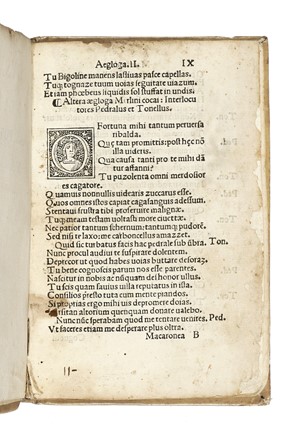 Aegloga. II. IX
Tu Bigoline manens lasciuas pasce capellas.
Tuqꝫ tognaze tuum uoias seguitare uiazum.
Et iam phœbeus liquidis sol stuffat in undis.
¶ Altera ægloga Merlini cocai: Interlocu
tores Pedralus et Tonellus.
Fortuna mihi tantum peruersa
ribalda.
Quę tam promittis: post hęc nō
illa uideris.
Qua causa tanti pro te mihi dā
tur affanni?
Tu puzolenta omni merdosior
es cagatore.
Quamuis nonnullis uidearis zuccarus esse.
Quos omnes istos capiat cagasanguis adessum.
Stentaui frustra tibi proseruire malignæ.
Tuqꝫ meam testam uoltrasti more ciuettæ.
Nec patior tantum schernum: tantumqꝫ pudorē.
Sed nisi te laxo: me carbonculus amazzet.
Quid sic turbatus facis hac pedrale sub ūbra. Ton.
Nunc procul audiui te suspirare dolentem.
Deprecor ut quod habes uoias buttare defora?
Tu bene cognoscis patrum nos esse parentes.
Nascitur in nobis ac nūquam deshonor ullus.
Tu scis quam sauius uilla reputatus in ista.
Consilios presto tuta cum mente piandos.
Si proprias ergo mihi uis depromere doias.
altorium quenquam donate ualebo.
Nunc nūc sperabam quod me tentare uenires. Ped.
Vt faceres etiam me desperare plus oltra.
Macaronea B
11-